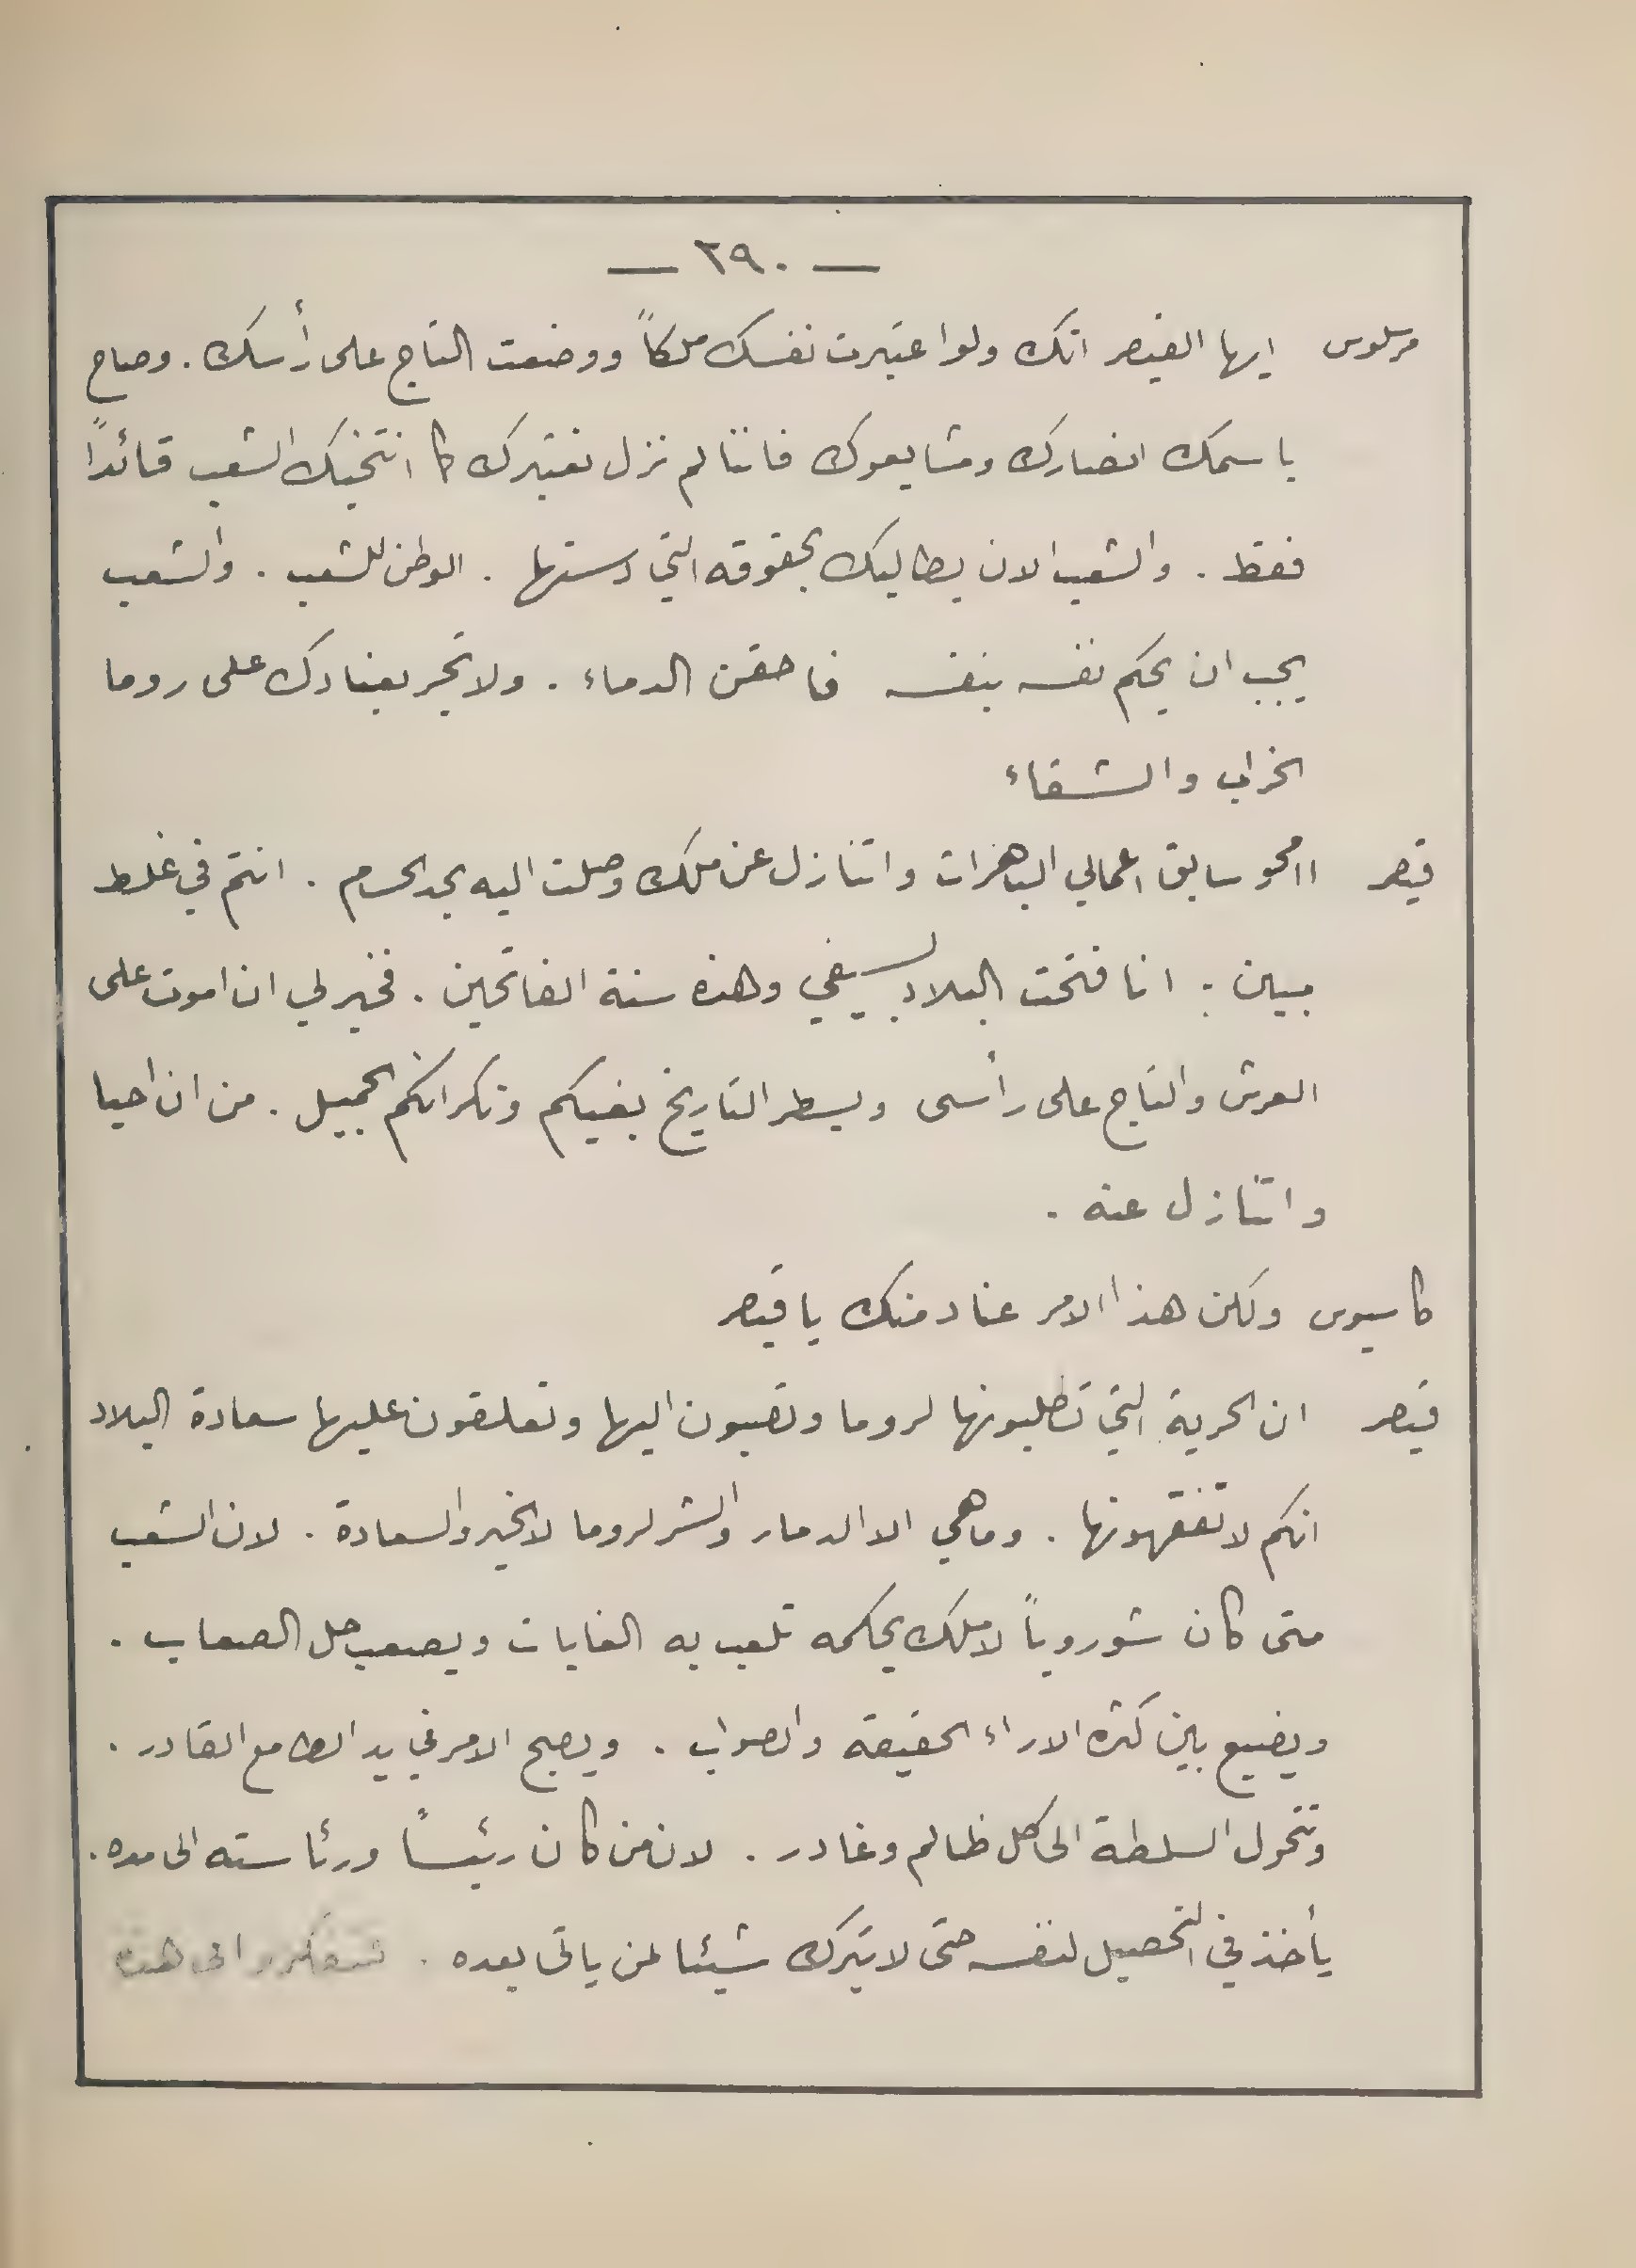 — ٢٩٠ —
مرسلوس ايها القيصر انك ولو اعتبرت نفسك ملكاً ووضعت التاج على رأسك . وصاح
باسمك انصارك ومشايعوك فاننا لم نزل نعتبرك كما انتخبك الشعب قائداً
فقط . والشعب الان يطالبك بحقوقه التي دستها . الوطن للشعب . والشعب
يجب ان يحكم نفسه بنفسه فاحقن الدماء . ولا تجر بعنادك على روما
الخراب والشقاء
قيصر اامحو سابق اعمالي الباهرات واتنازل عن ملك وصلت اليه بحد الحسام . انتم في غلط
مبين : انا فتحت البلاد بسيفي وهذه سنة الفاتحين . فخير لي ان اموت على
العرش والتاج على رأسى ويسطر التاريخ بغيكم ونكرانكم الجميل . من ان احيا
واتنازل عنه .
كاسيوس ولكن هذا الامر عناد منك يا قيصر
قيصر ان الحرية التي تطلبونها لروما وتصبون اليها وتعلقون عليها سعادة البلاد
انكم لا تفقهونها . وما هي الا الدمار والشر لروما لا الخير والسعادة . لان الشعب
متى كان شوروياً لا ملك يحكمه تلعب به الغايات ويصعب حل الصعاب .
ويضيع بين كثره الاراء الحقيقة والصواب . ويصبح الامر في يد الطامع القادر .
وتتحول السلطة الى كل ظالم وغادر . لان من كان رئيساً ورئاسته الى مده .
يأخذ في التحصيل لنفسه حتى لا يترك شيئا لمن ياتى بعده . الى هذه